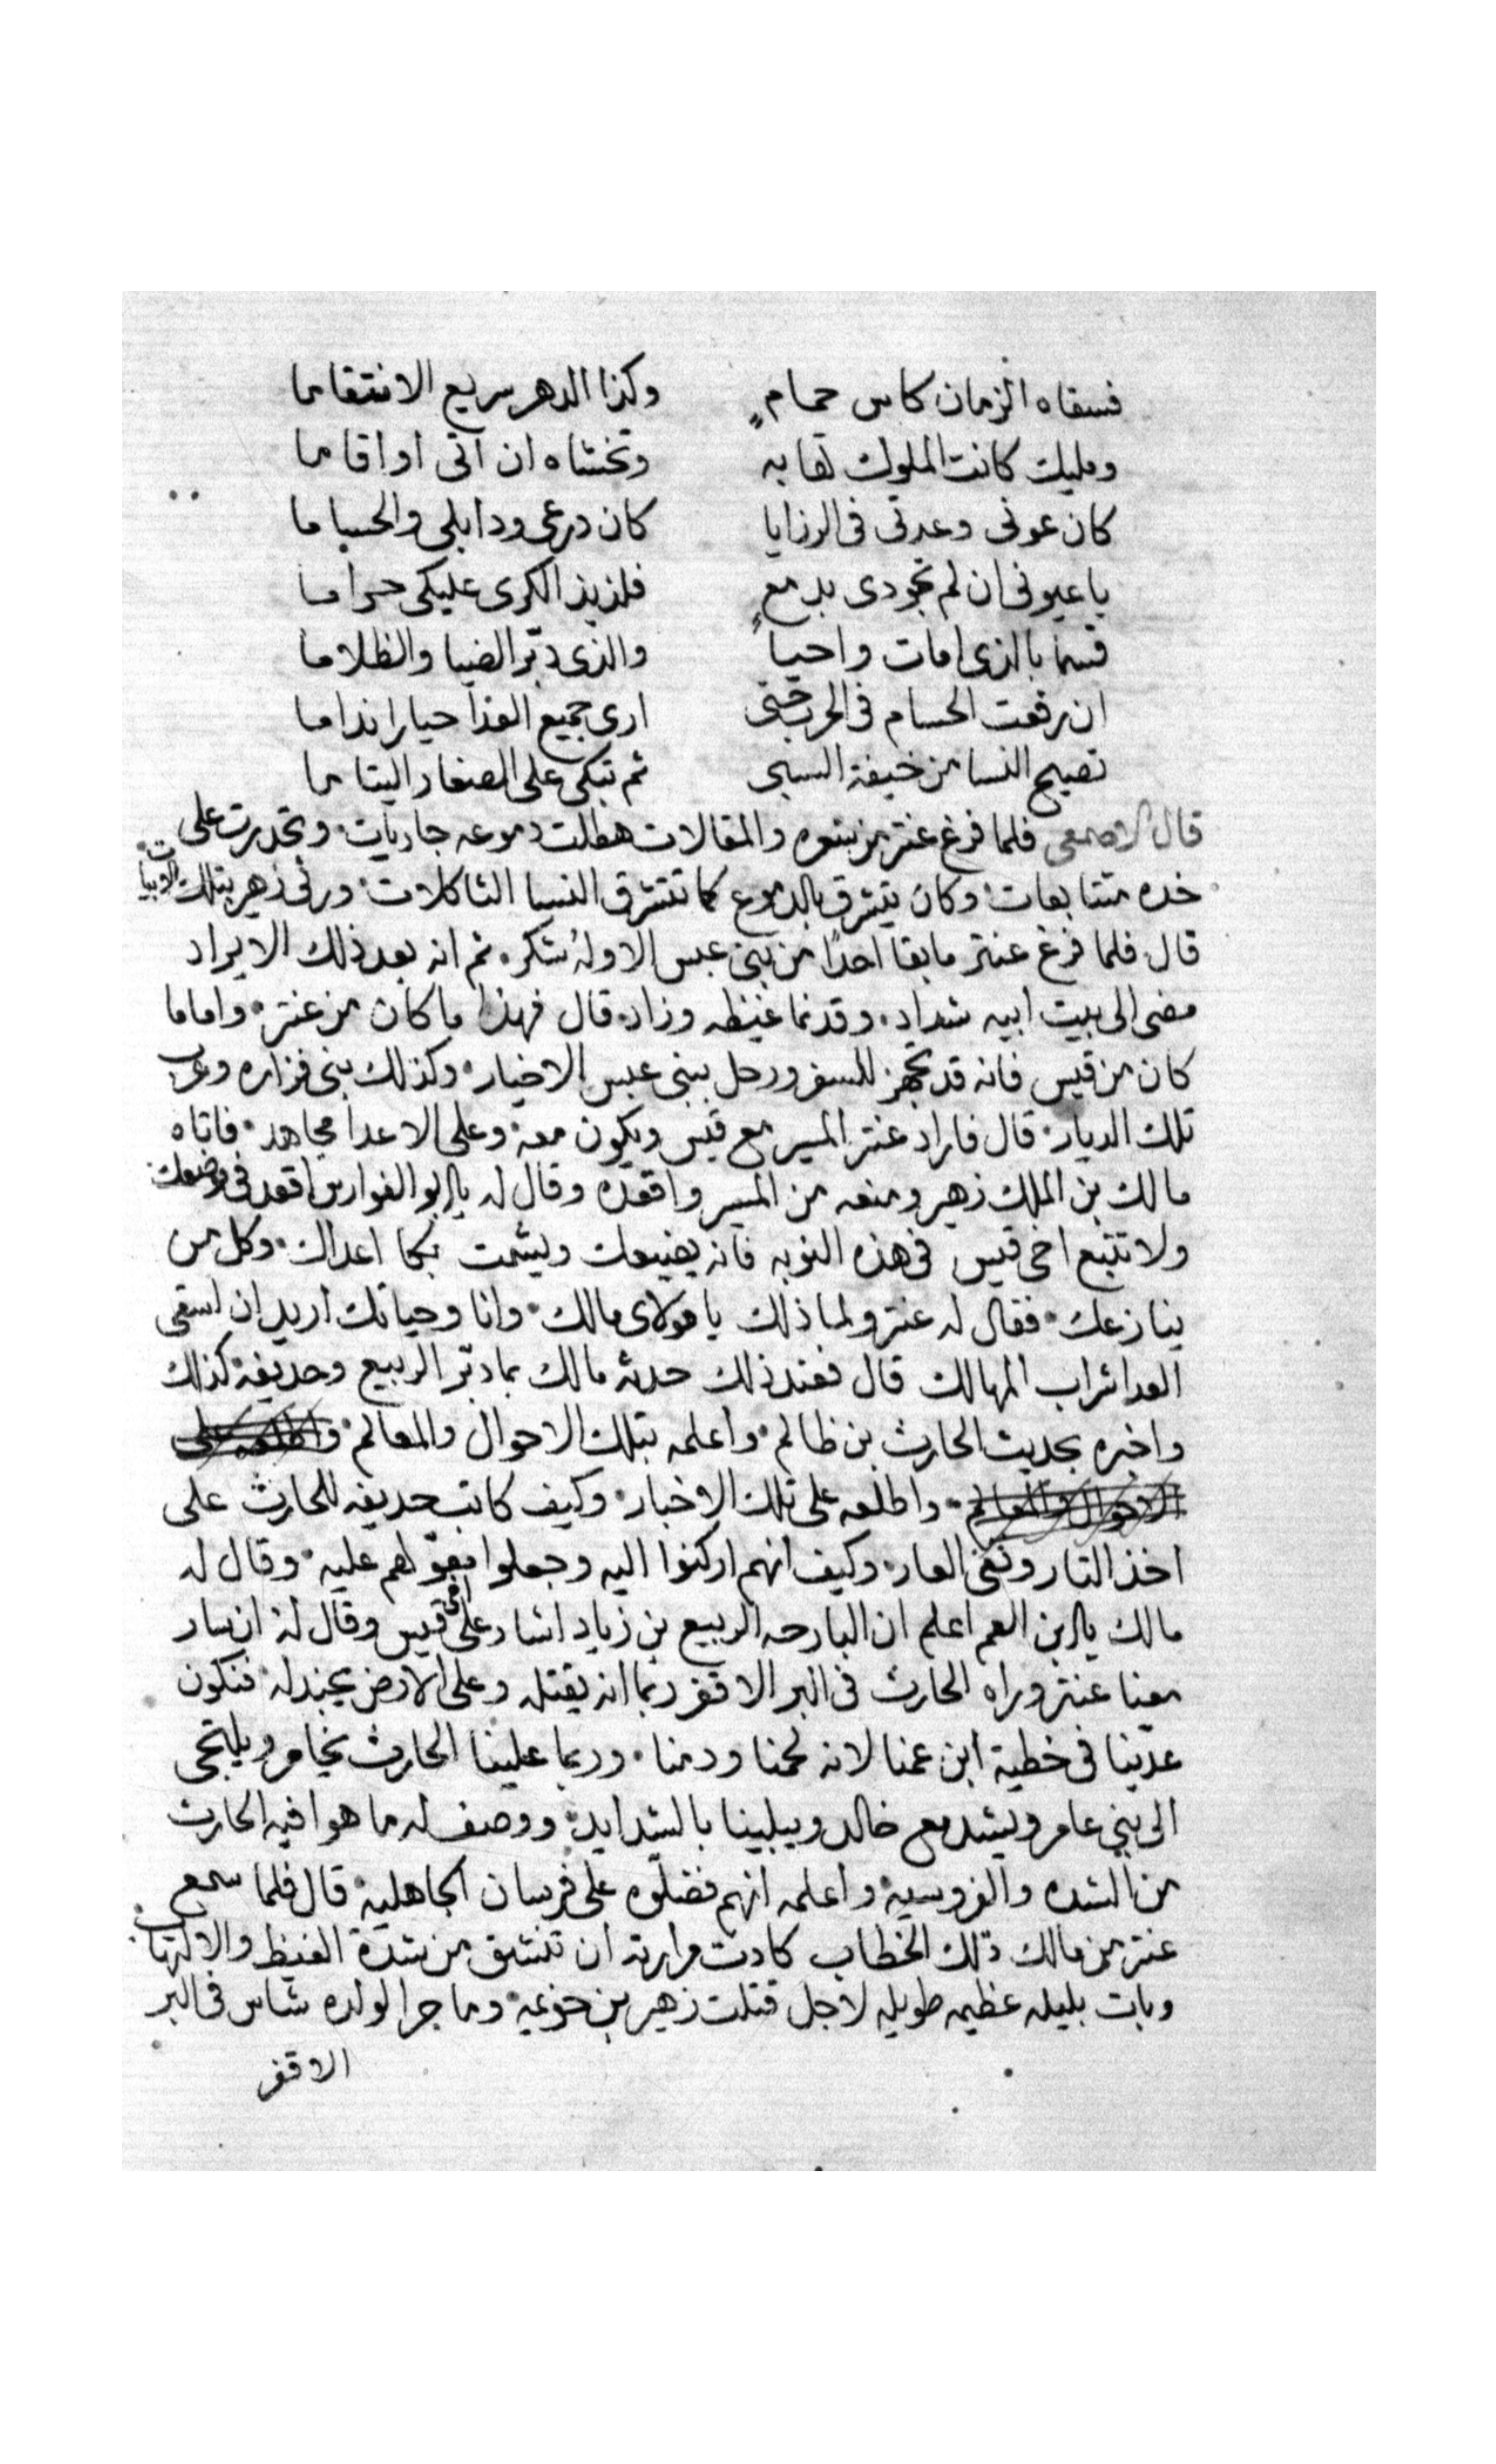 فسقاه الزمان كاس حمامٍ وكذا الدهر سريع الانتقاما
ومليك كانت الملوك تهابه وتخشاه ان اتى او اقاما
كان عونى وعدتى فى الرزايا كان درعى ودابلى والحساما
يا عيونى ان لم تجودى بدمعٍ فلذيذ الكرى عليكى حراما
قسما بالذى امات واحياً والذى دبّر الضيا والظلاما
ان رفعت الحسام فى الحرب حتى ارى جميع العدا حيارا نداما
تصيح النسا من خيفة السبى ثم تبكى على الصغار اليتاما
قال الاصمعى فلما فرغ عنتر من شعره والمقالات هطلت دموعه جاريات وتحدرت على
خده متتابعات وكان يتشرق بالدموع كما تتشرق النسا الثاكلات ورثى زهير بتلك الابيات
قال فلما فرغ عنتر ما بقا احدًا من بنى عبس الا وله شكر ثم انه بعد ذلك الايراد
مضى الى بيت ابيه شداد وقد نما غيظه وزاد قال فهذا ما كان من عنتر واما ما
كان من قيس فانه قد تجهز للسفر ورحل ببنى عبس الاخيار وكذلك بنى فزاره وعرب
تلك الديار قال فاراد عنتر المسير مع قيس ويكون معه وعلى الاعدا مجاهد فاتاه
مالك بن الملك زهير ومنعه من المسير واقعده وقال له يا ابو الفوارس اقعد فى موضعك
ولا تتبع اخى قيس فى هذه النوبه فانه يضيعك ويشمت بك اعداك وكل من
ينازعك فقال له عنتر ولما ذلك يا مولاى مالك وانا وحياتك اريد ان اسقى
العدا شراب المهالك قال فعند ذلك حدثه مالك بما دبّر الربيع وحديفه كذلك
واخبره بحديث الحارث بن ظالم واعلمه بتلك الاحوال والمعالم واطلعه على
الاحوال والمعالم واطلعه على تلك الاخبار وكيف كاتب حديفه للحارث على
اخذ التار ونفى العار وكيف انهم اركنوا اليه وجعلوا معوّلهم عليه وقال له
مالك يا ابن العم اعلم ان البارحه الربيع بن زياد اشار على اخى قيس وقال له ان سار
معنا عنتر وراه الحارث فى البر الاقفر ربما انه يقتله وعلى الارض يجندله فنكون
عدّينا فى خطية ابن عمنا لانه لحمنا ودمنا وربما علينا الحارث يخامر ويلتجى
الى بني عامر ويشد مع خالد ويبلينا بالشدايد ووصف له ما هوا فيه الحارث
من الشده والفروسيه واعلمه انهم فضلوه على فرسان الجاهليه قال فلما سمع
عنتر من مالك ذلك الخطاب كادت مرارته ان تنشق من شدة الغيظ والالتهاب
وبات بليله عظيمه طويله لاجل قتلت زهير بن خزعيه وما جرا لولده شاس فى البر
الاقفر